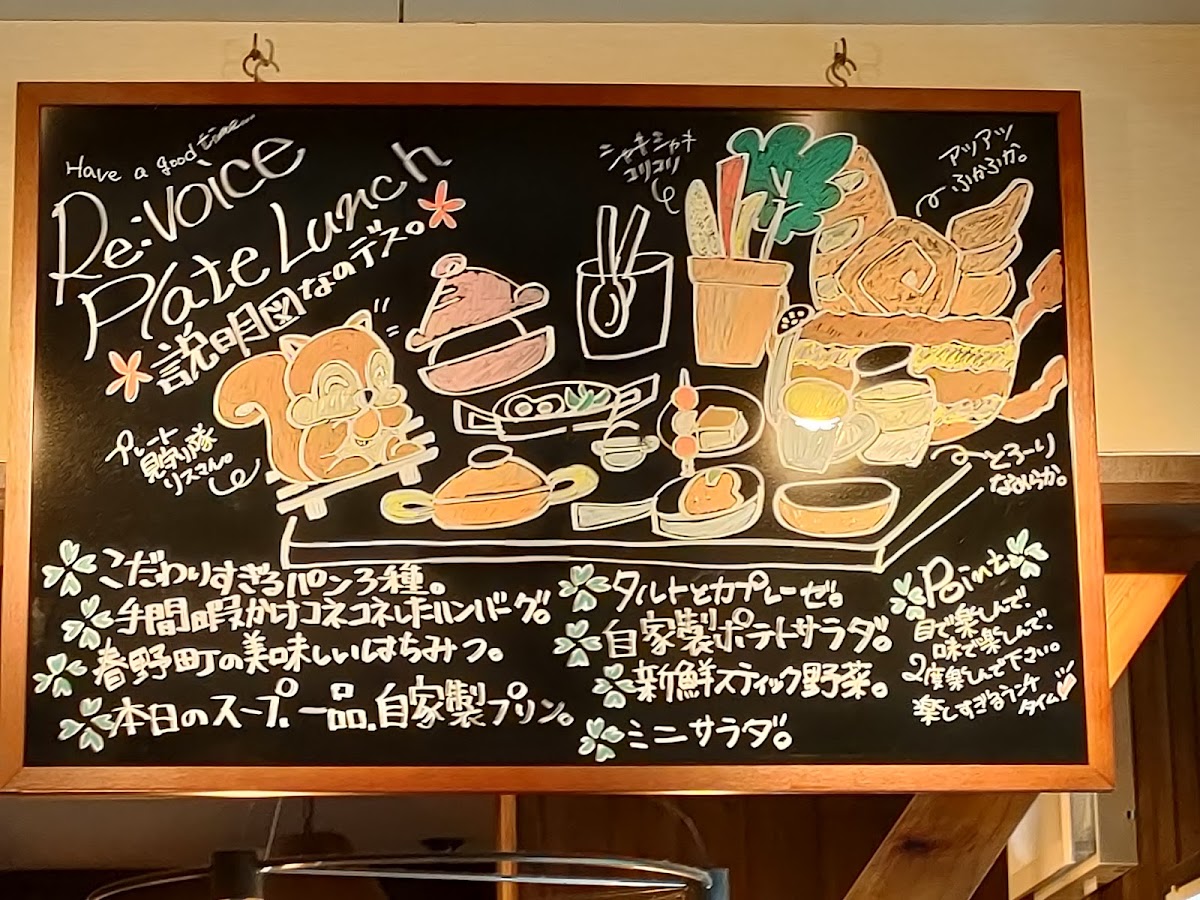 Have a good time...
Re:voice
Plate Lunch
説明図なのデス。
シャキシャキ
コリコリ
アツアツ
ふかふか。
プレート
見守り隊
リスさん。
とろーり
なめらか。
こだわりすぎるパン3種。
手間暇かけコネコネしたハンバーグ。
春野町の美味しいはちみつ。
本日のスープ.一品.自家製プリン。
タルトとカプレーゼ。
自家製ポテトサラダ。
新鮮スティック野菜。
ミニサラダ。
Point
目で楽しんで、
味で楽しんで、
2度楽しんで下さい。
楽しすぎるランチ
タイム